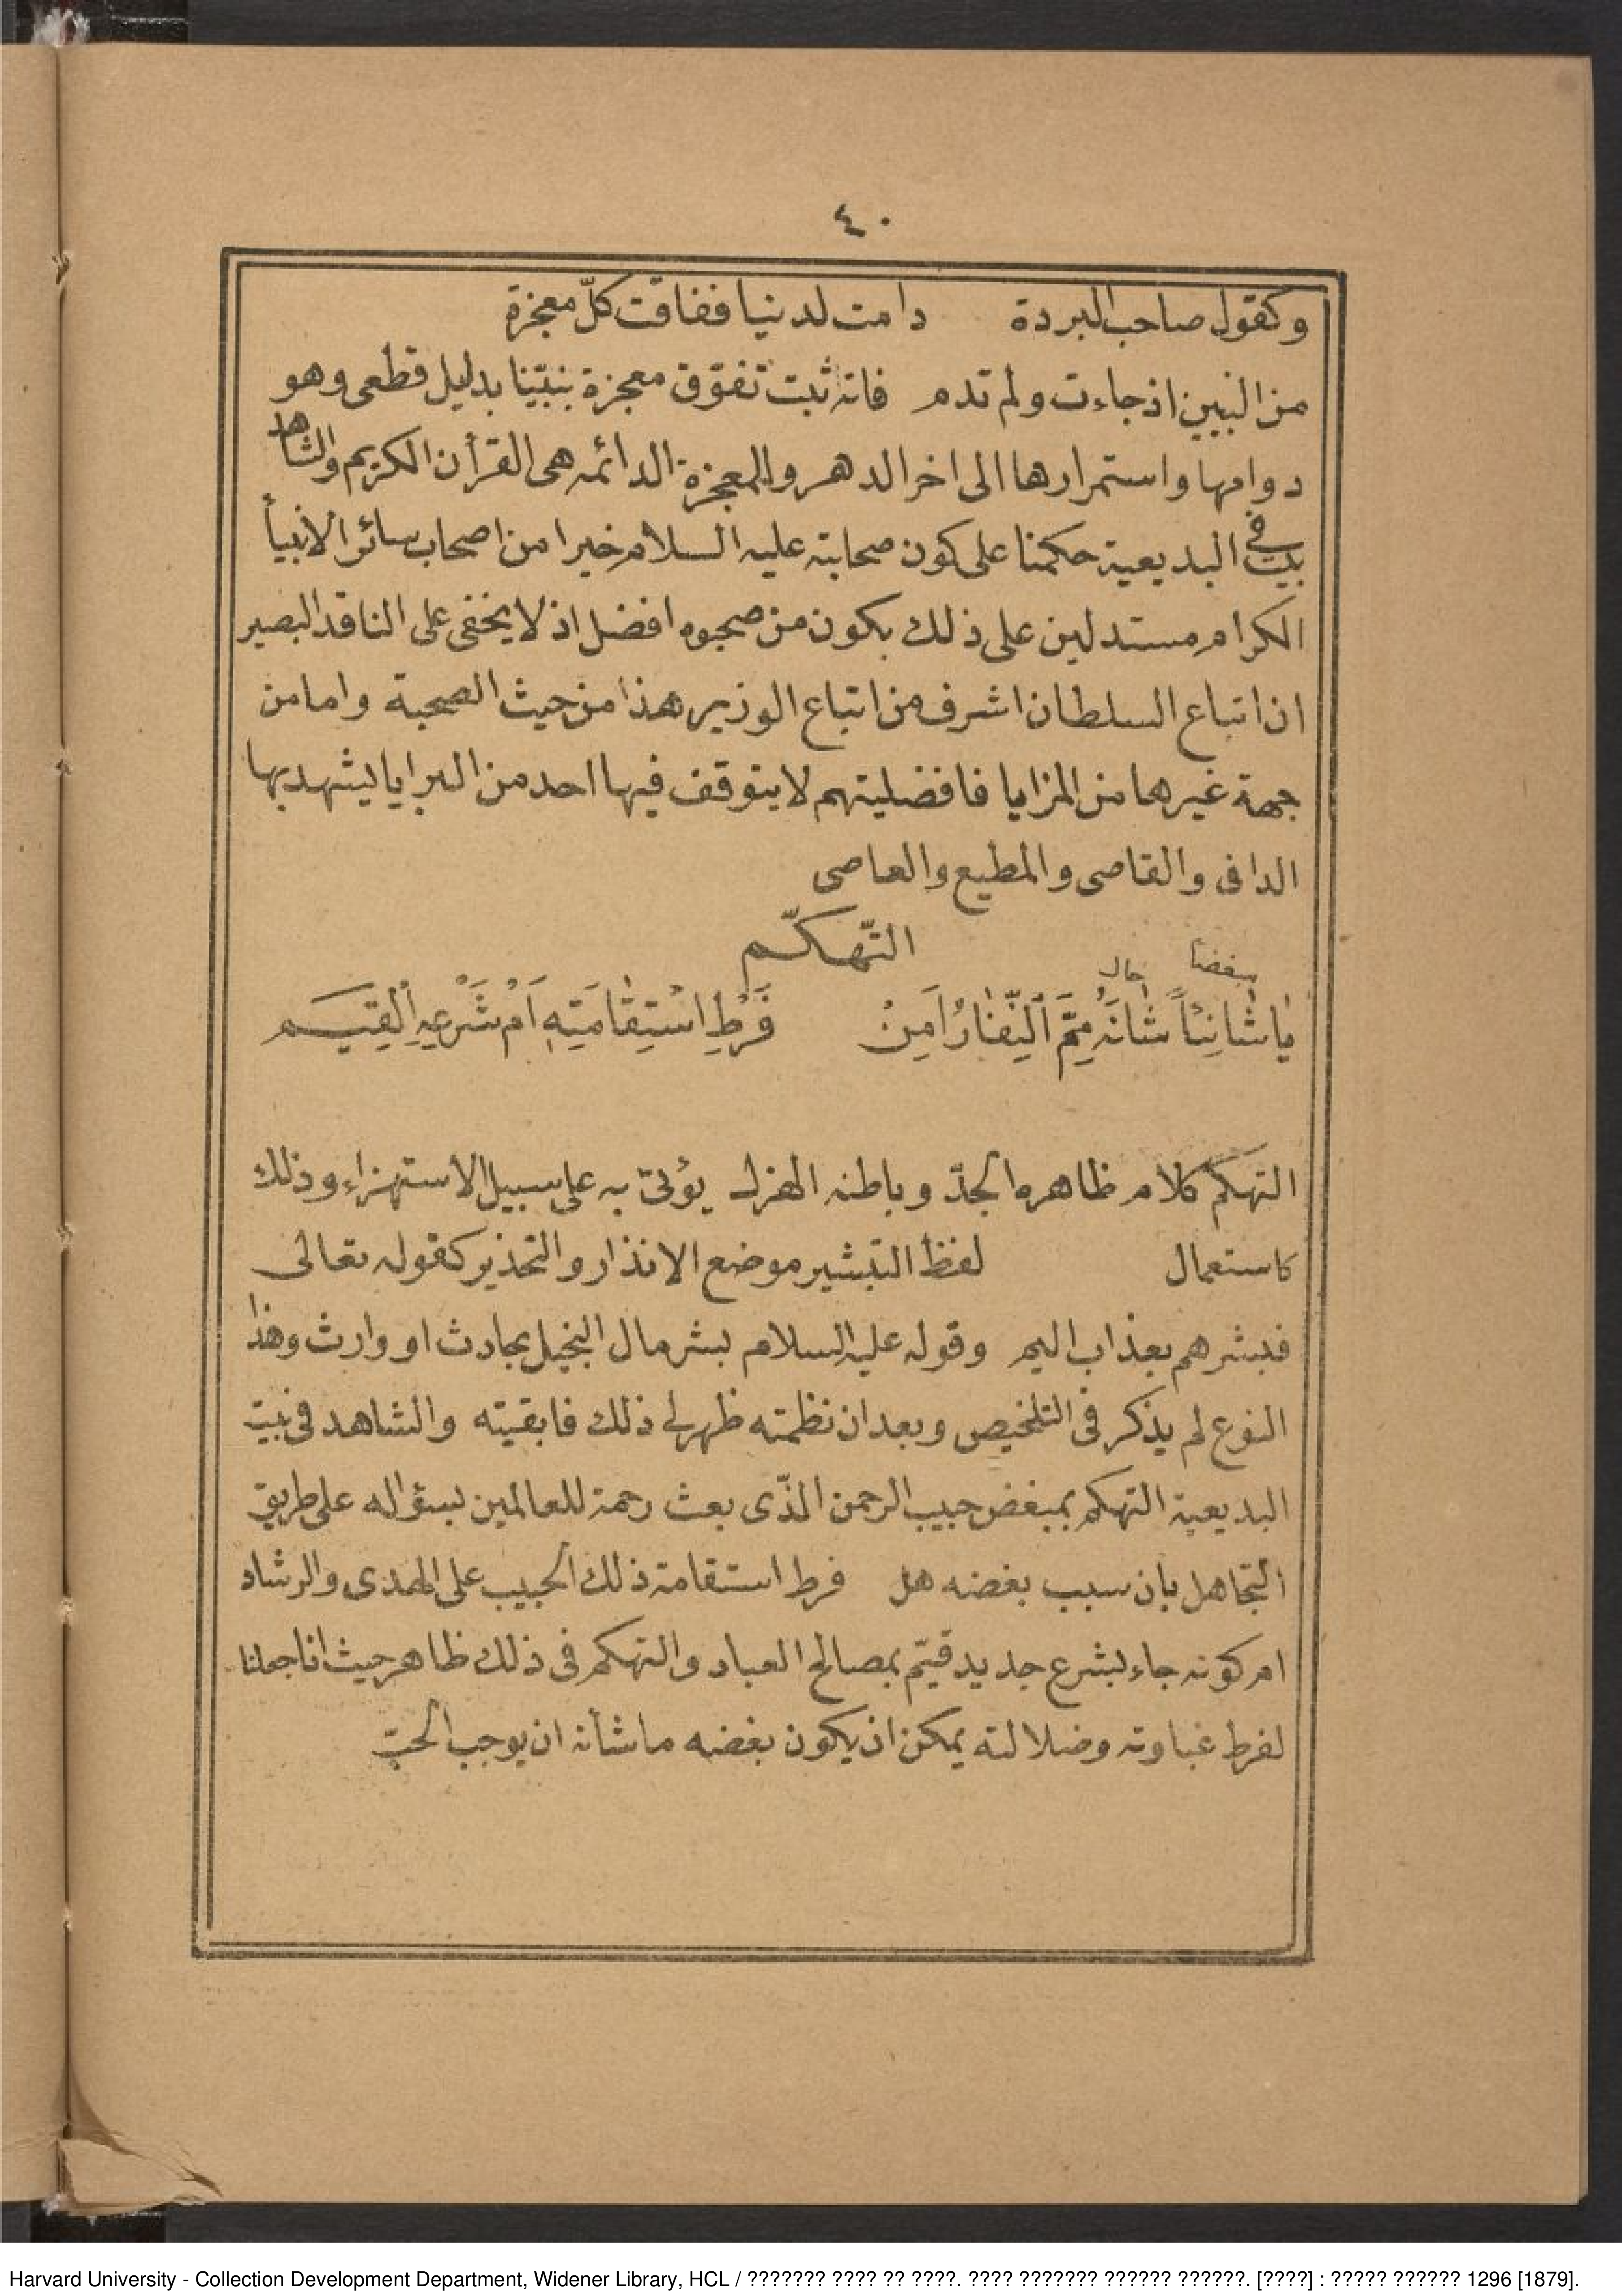 ٤٠
وكقول صاحب البردة دامت لدينا ففاقت كلّ معجزة
من النبيين اذ جاءت ولم تدم فانه ثبت تفوّق معجزة بنبيّنا بدليل قطعى وهو
دوامها واستمرارها الى اخر الدهر والمعجزة الدائمه هى القرأن الكريم والشاهد
فى بيت البديعية حكمنا على كون صحابته عليه السلام خيرا من اصحاب سائر الانبيأ
الكرام مستدلين على ذلك بكون من صحبوه افضل اذ لا يخفى على الناقد البصير
ان اتباع السلطان اشرف من اتباع الوزير هذا من حيث الصحبة واما من
جهة غيرها من المزايا فافضليتهم لا يتوقف فيها احد من البرايا يشهد بها
الدانى والقاصى والمطيع والعاصى
التّهكّم
مبغضا حال
يٰا شٰانِئاً شٰانَهُ مِمَّ النِّفٰارُ اَمِنْ فَرْطِ اسْتِقٰامَتِهِ اَمْ شَرْعِهِ الْقِيَمِ
التهكم كلام ظاهره الجدّ وباطنه الهزل يؤتى به على سبيل الاستهزاء وذلك
كاستعمال لفظ التبشير موضع الانذار والتحذير كقوله تعالى
فبشرهم بعذاب اليم وقوله عليه السلام بشر مال البخيل بحادث او وارث وهذا
النوع لم يذكر فى التلخيص وبعد ان نظمته ظهر لى ذلك فابقيته والشاهد فى بيت
البديعية التهكم بمبغض حبيب الرحمن الذّى بعث رحمة للعالمين بسؤاله على طريق
التجاهل بان سبب بغضه هل فرط استقامة ذلك الحبيب على الهدى والرشاد
ام كونه جاء بشرع جديد قيّم بمصالح العباد والتهكم فى ذلك ظاهر حيث انا جعلنا
لفرط غباوته وضلالته يمكن ان يكون بغضه ما شأنه ان يوجب الحبّ
Harvard University - Collection Development Department, Widener Library, HCL / ??????? ???? ?? ????. ???? ??????? ?????? ??????. [????] : ????? ?????? 1296 [1879].